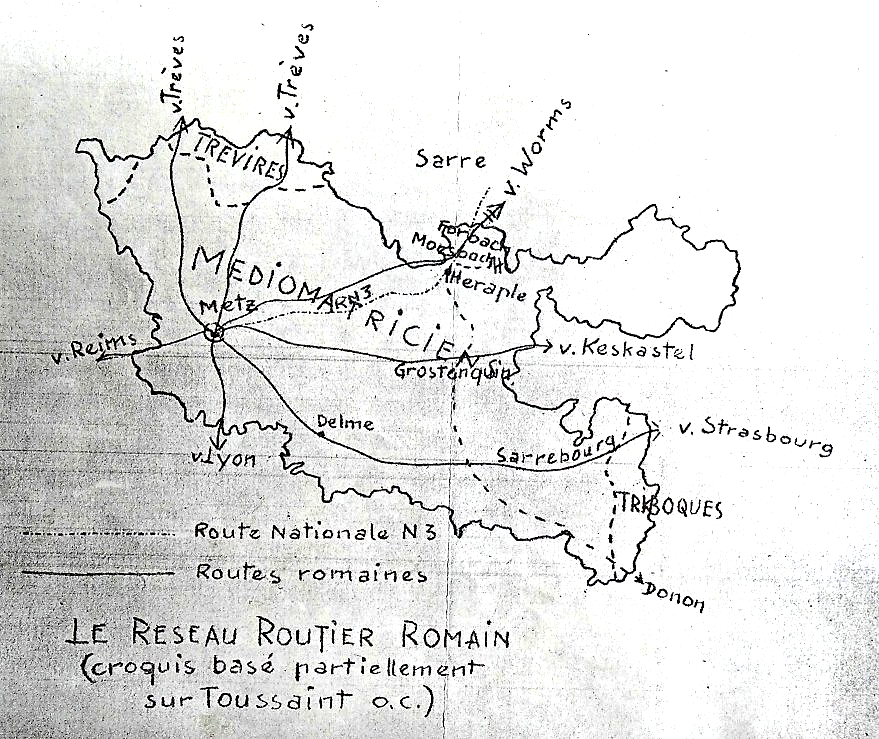 v.Trèves
v.Trèves
TRÉVIRES
Sarre
v. Worms
Forbach
Morsbach
Hérapl​e
MEDIOMATRICIENS
RN3
Metz
v.Reims
v. Keskastel
Grostenquin
Delme
v. Strasbourg
Sarrebourg
v.Lyon
TRIBOQUES
Route Nationale N3
Routes romaines
Donon
LE RESEAU ROUTIER ROMAIN
(croquis basé partiellement
sur Toussaint o.c.)